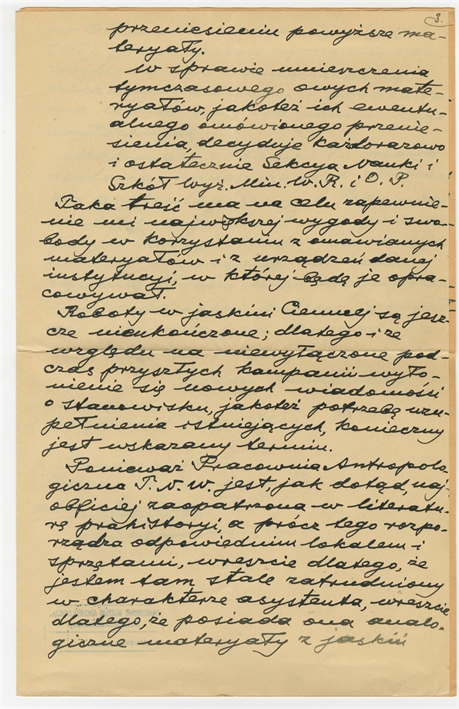 3.
przeniesieniu powyższe ma-
teryały.
W sprawie umieszczenia
tymczasowego owych mate-
ryałów, jakoteż ich ewentu-
alnego omówionego przenie-
sienia, decyduje każdorazowo
i ostatecznie Sekcya Nauki i
Szkół Wyż. Min. W. R. i O. P.
Taka treść ma na celu zapewnie-
nie mi największej wygody i swo-
body w korzystaniu z omawianych
materyałów i z urządzeń danej
instytucyi, w której będę je opra-
cowywał.
Roboty w jaskini Ciemnej są jesz-
cze nieukończone; dlatego i ze
względu na niewyłączone pod-
czas przyszłych kampanii wyło-
nienie się nowych wiadomości
o stanowisku, jakoteż potrzebę uzu-
pełnienia istniejących, konieczny
jest wskazany termin.
Ponieważ Pracownia Antropolo-
giczna T. N. W. jest, jak dotąd, naj-
obficiej zaopatrzona w literatu-
rę prahistoryi, a prócz tego rozpo-
rządza odpowiednim lokalem i
sprzętami, wreszcie dlatego, że
jestem tam stale zatrudniony
w charakterze asystenta, wreszcie
dlatego, że posiada ona analo-
giczne materyały z jaskiń